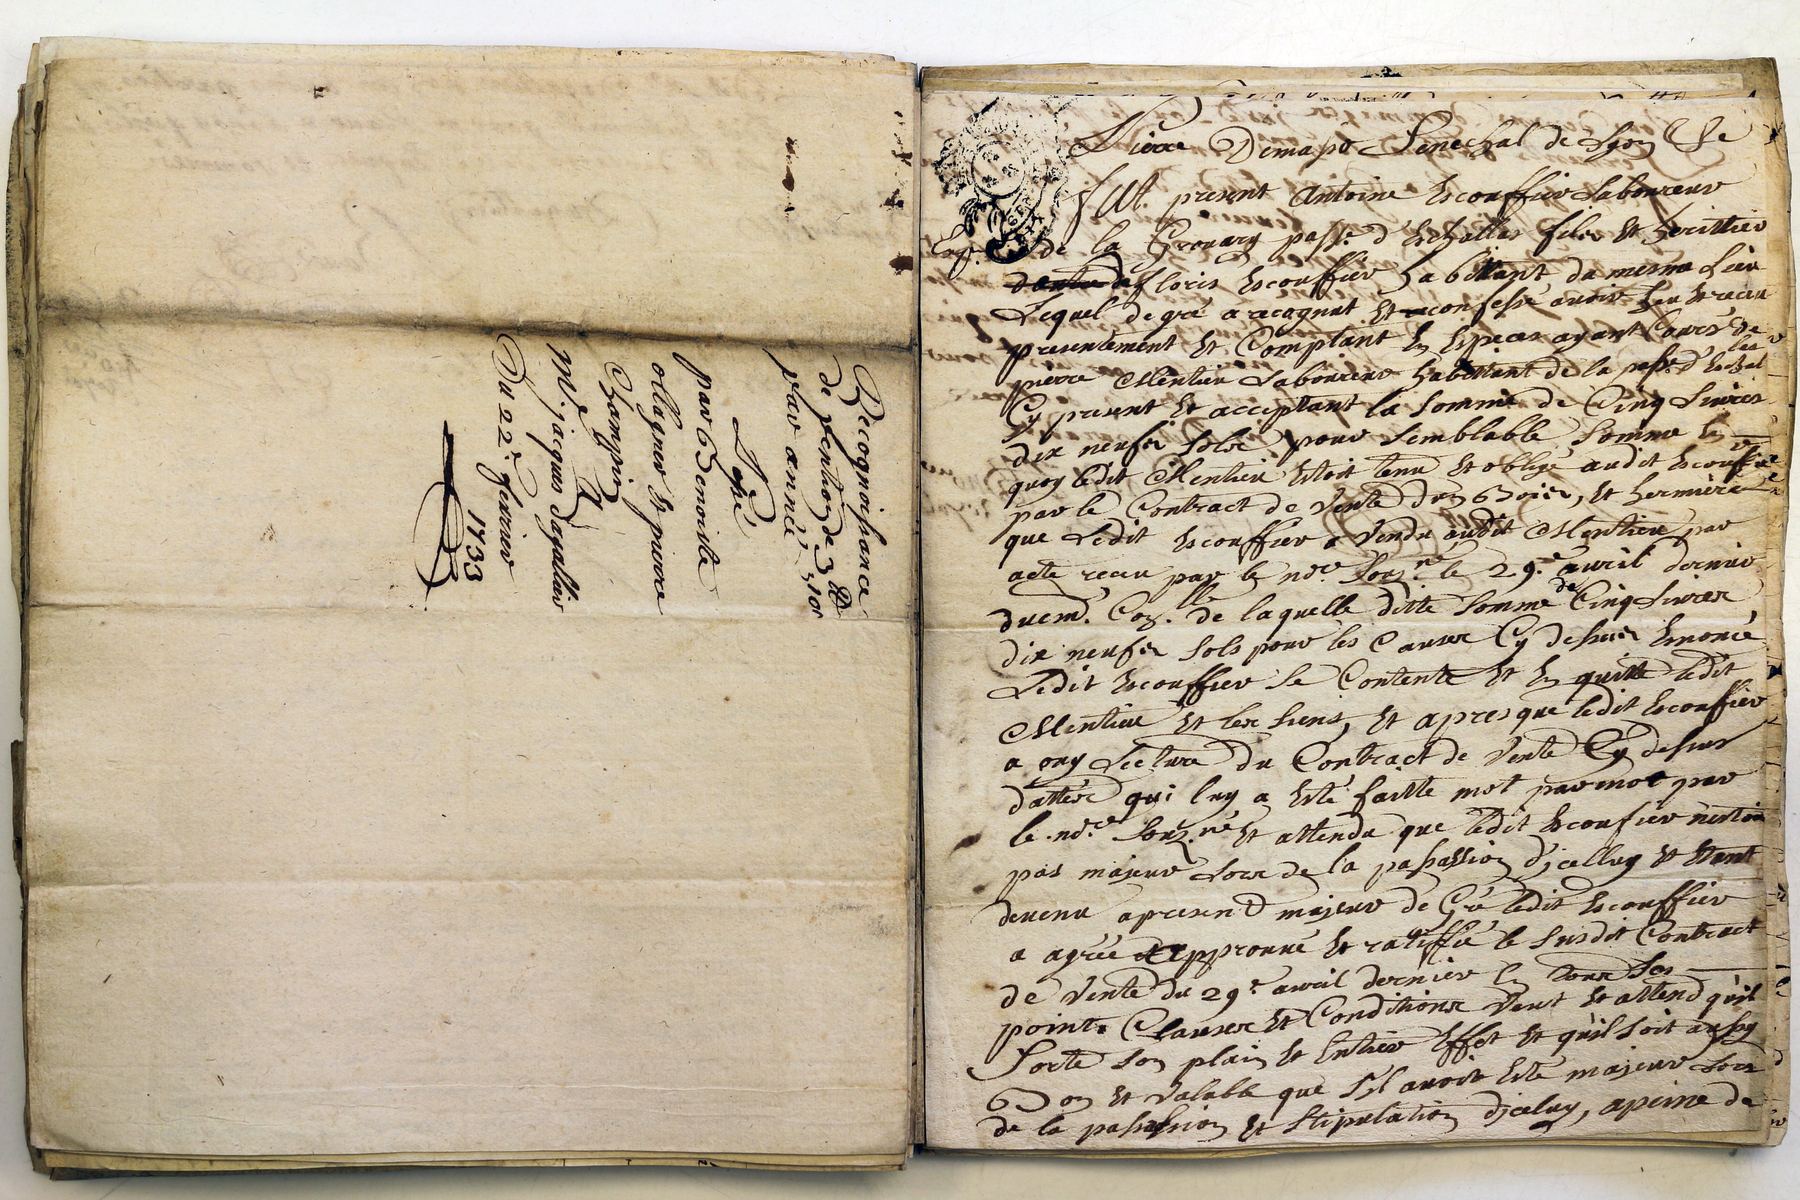 Recognoissance
de penthon de 3 ld
par année 310s
Copé
par Benoiste
ollagner & pierre
Champin
A
Mr. jacques Dagallier
Du 22e. feuvrier
1733
Pierre Dema Senechal de Lyon &
fut. present antoine Escouffier Laboureur
Enf. de la Grouary pasße. d'Echallas filis et herittier
floris Escouffier habittant du mesme Lieu
Lequel de gré a recognut et confessé avoir heu et receu
presentement et Comptant En Especes ayant Cours de
pierre Mentieu Laboureur habittant de la paße. d'Echallas
Cy present et acceptant la somme de Cinq Livres
dix neufs sols pour semblable somme En
quoy ledit Mentieu Estoit tenu et obligé audit Escouffier
par le Contract de Vente des Boies, et hermiere
que Ledit Escouffier a Vendu audit Mentieu par
acte receu par le nore. Sousne. le 29e. avril dernier
duem. Coz. de laquelle ditte somme de Cinq Livres
dix neufs sols pour les Causes Cy dessus Enoncé
Ledit Escouffier se Contente et En quitte ledit
Mentieu et les siens, et apres que ledit Escouffier
a ouy Lecture du Contract de Vente Cy dessus
datter qui luy a Esté faitte mot par mot par
le nore. Sousné et attendu que ledit Escoufier nestoit
pas majeur Lors de la passassion d'jcelluy et Etant
devenu apresent majeur de Gré ledit Escouffier
a agréé approuvé et ratiffié le susdit Contract
de Vente du 29e. avril dernier En tous ses
points Clauses et Conditions Veut et attend qu'il
Sorte son plain et Entier Effet et qu'il soit aussy
Bon et Valable que s'il avoit Esté majeur Lors
de la passassion et stipulation djceluy, apeine de